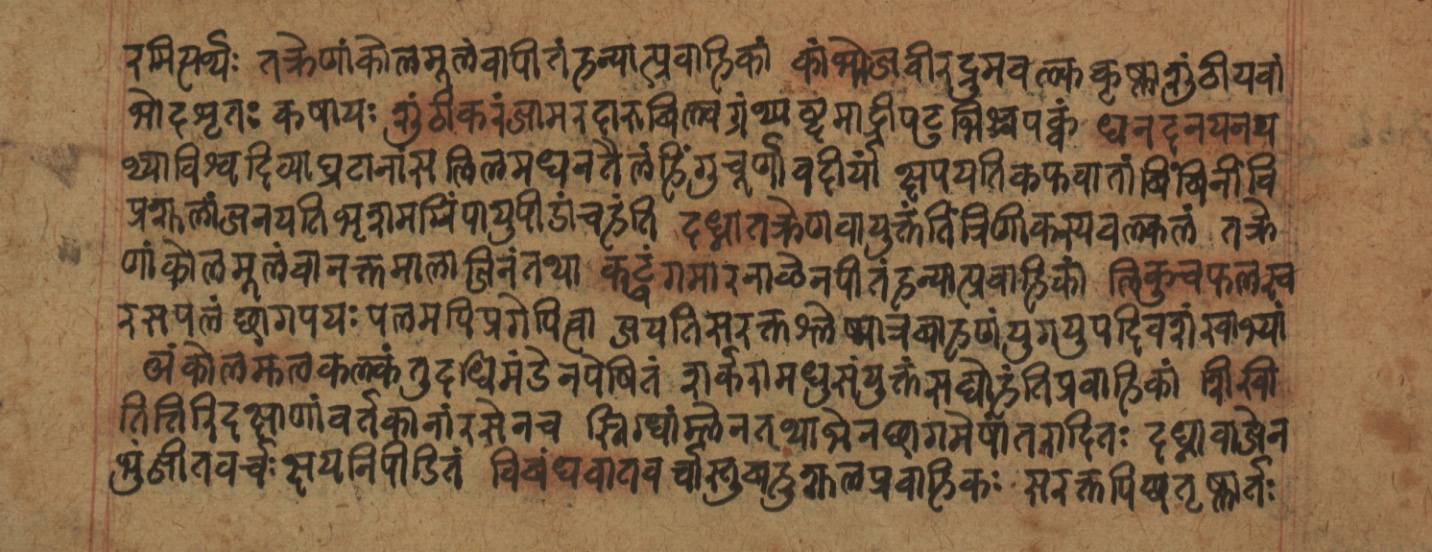 रमिसर्थ्यः तक्रेणांकोलमूलंवापीतंहन्यात्प्रवाहिकां कांभोजवीरद्रुमवल्ककृष्णाशुंठीयवां
भोदशृतः कषायः शुंठीकरंजामरदारुबिल्वग्रंथ्य माद्रीपटुभिश्चपक्वं धनदनयनप
थ्याविश्वदिव्याघ्रटानांसलिलमधनतैलंहिंगुचूर्णावदीर्यां क्षपयतिकफवातांबिंबिनींवि
प्रशूलांजनयतिभृशमग्निंपायुपीडांचहंति दध्नातक्रेणवायुक्तंतिंत्रिणीकस्यवल्कलं तक्रे
णांकोलमूलंवानक्तमालाजिनंतथा कट्वंगमारनालेनपीतंहन्यात्प्रवाहिकां लिकुचफलस्व
रसपलंछागपयःपलमपिप्रगेपित्वा जयतिसरक्तश्लेष्मा युगयुपदिवशंखाभ्यां
अंकोलमूलकल्कंतुदधिमंडेनपेषितं शर्करामधुसंयुक्तंसद्योहंतिप्रवाहिकां शिखी
तित्तिरिदक्षाणांवर्तकानांरसेनच स्निग्धांम्लेनतथाजेनछागमेषांतरादितः दध्नावाजेन
भुंजीतवर्चःक्षयनिपीडितं विबंधवातवर्चास्तुबहुशूलप्रवाहिकः सरक्तपित्ततृष्णार्तः